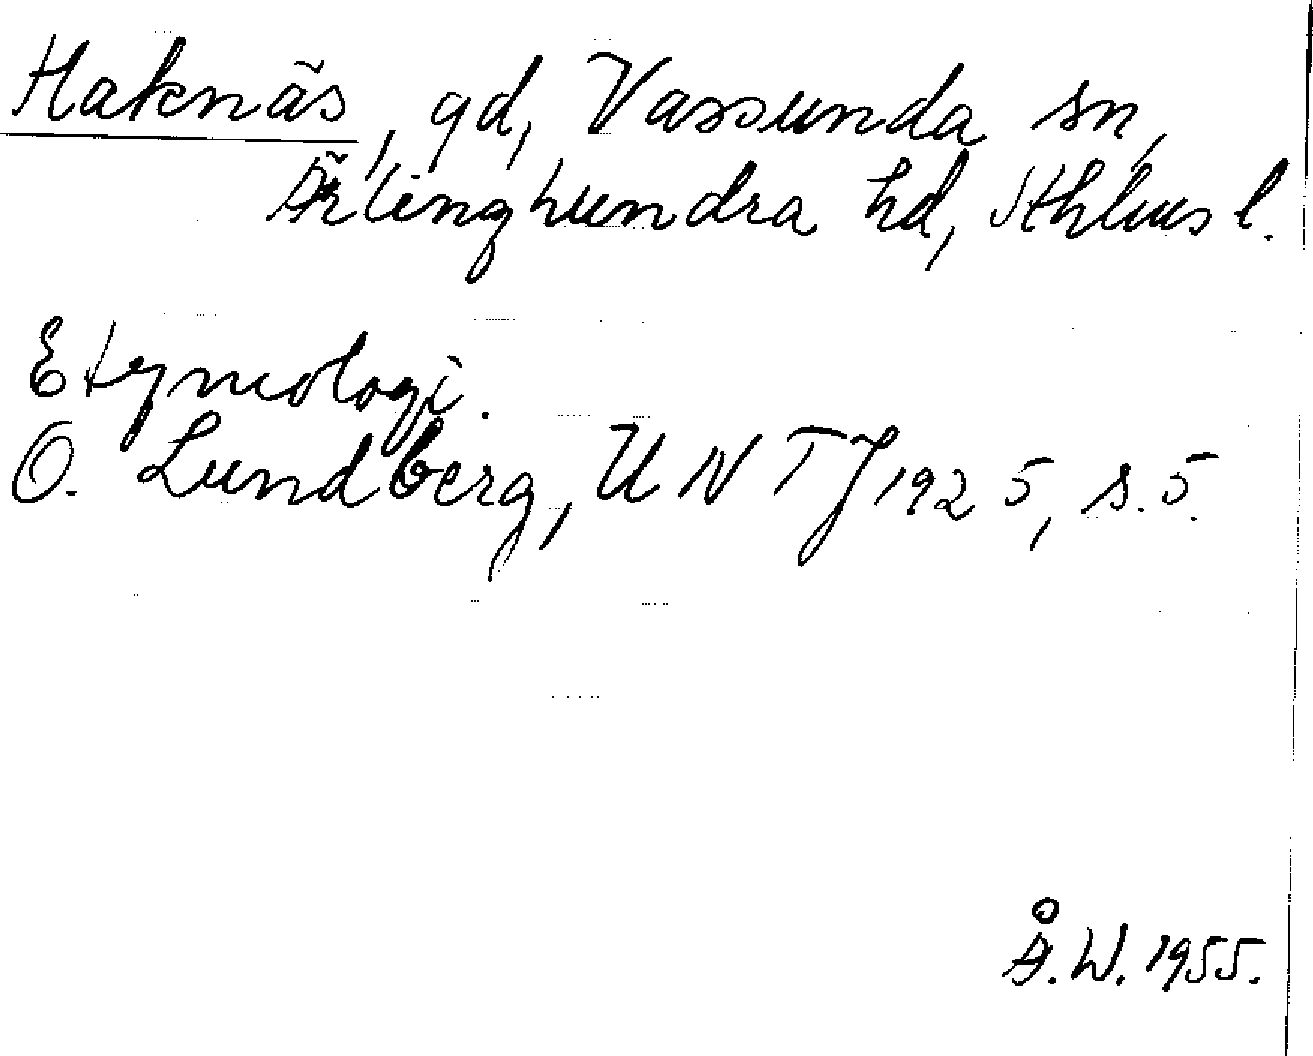 Haknäs, gd, Vassunda sn,
Ärlinghundra hd, Sthlms l.
Etymologi.
O. Lundberg, UNTJ 1925, s. 5.
Å.W. 1955.